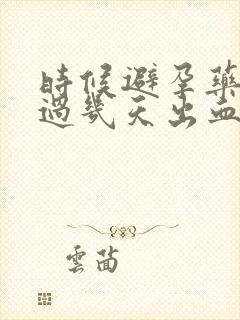 時候避孕藥
過幾天出血
雲